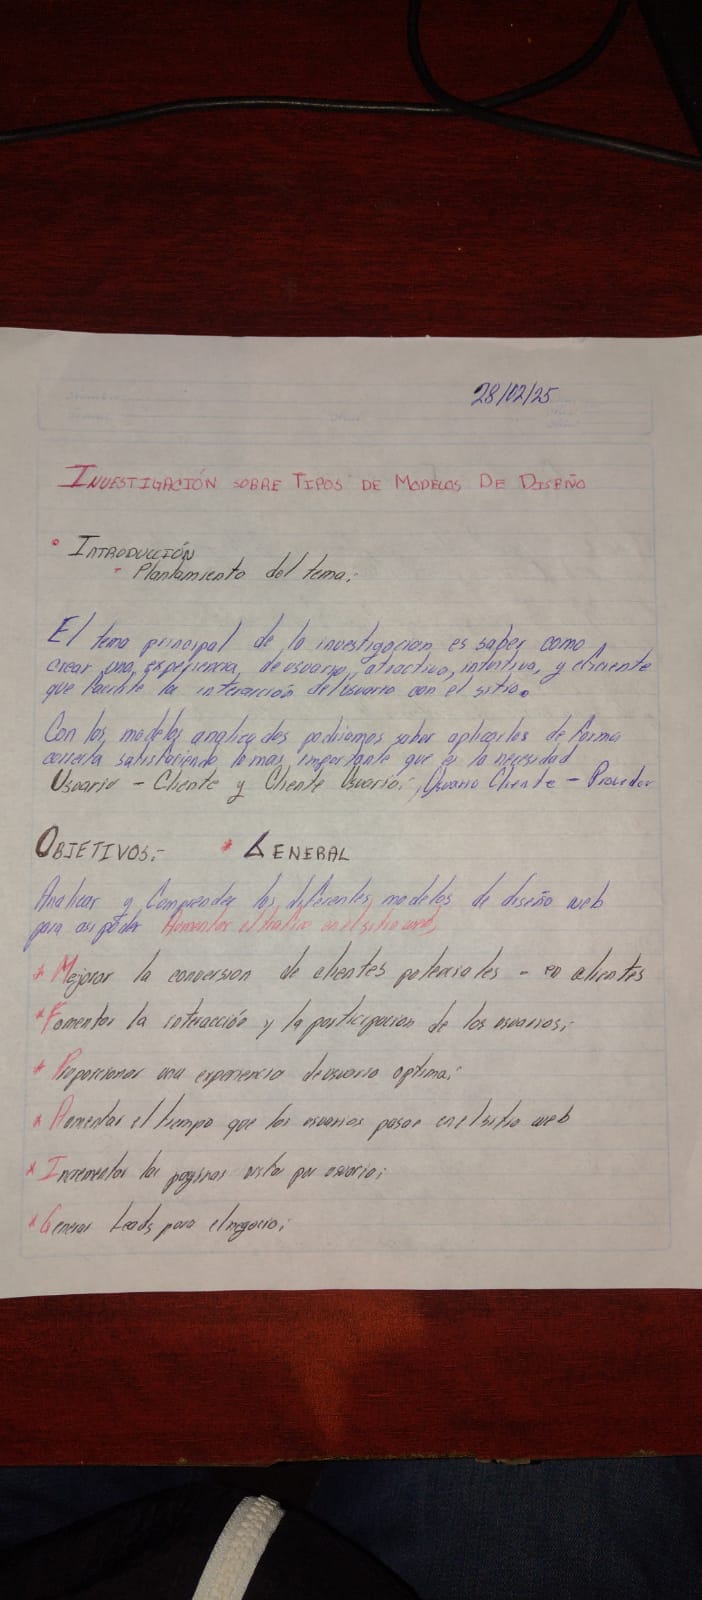 28/02/25
INVESTIGACIÓN SOBRE TIPOS DE MODELOS DE DISEÑO
• INTRODUCCIÓN
- Plantamiento del tema:
El tema principal de la investigacion es saber como
crear una experiencia, de usuario, atractiva, intuitiva, y eficiente
que facilite la interacción del usuario con el sitio.
Con los modelos analizados podriamos saber aplicarlos de forma
correcta satisfaciendo lo mas importante que es la necesidad
Usuario - Cliente y Cliente Usuario; Usuario Cliente - Proveedor
OBJETIVOS:- * GENERAL
Analizar y Comprender los diferentes modelos de diseño web
para asi poder Aumentar el trafico en el sitio web,
* Mejorar la conversion de clientes potenciales - en clientes
* Fomentar la interacción y la participacion de los usuarios;
* Proporcionar una experiencia de usuario optima;
* Aumentar el tiempo que los usuarios pasan en el sitio web
* Incrementar las paginas vistas por usuario;
* Generar Leads para el negocio;